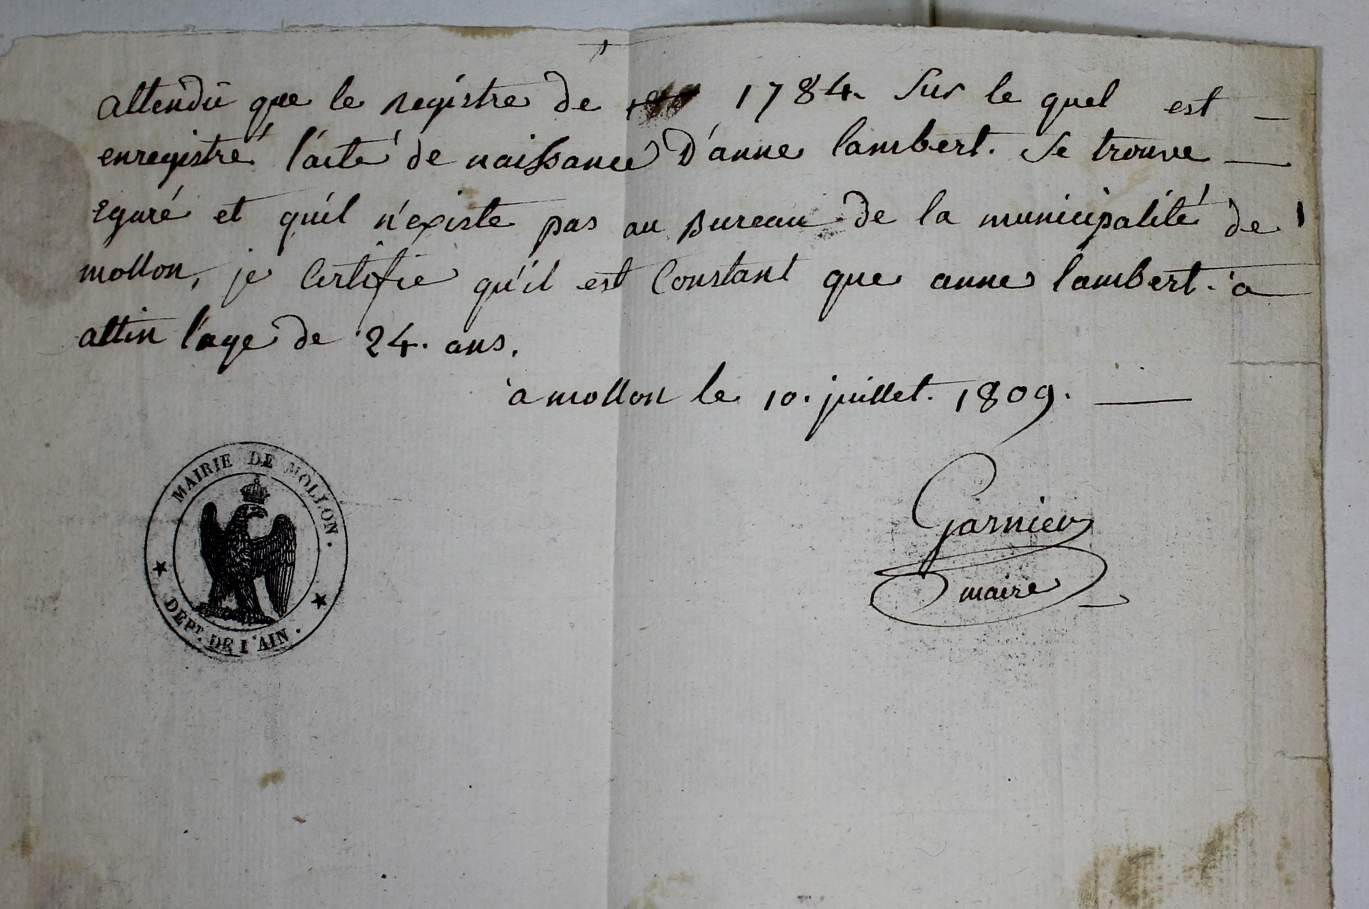 attendu que le registre de 1784. Sur le quel est
enregistré l'acte de naissance D'anne lambert. Se trouve
Egaré et qu'il n'existe pas au Bureau de la municipalité de
mollon, je Certifie qu'il est Constant que anne lambert. a
attin l'age de 24. ans.
a mollon le 10. juillet. 1809.
MAIRIE DE MOLLON.
DEPT. DE L'AIN.
Garnier
maire